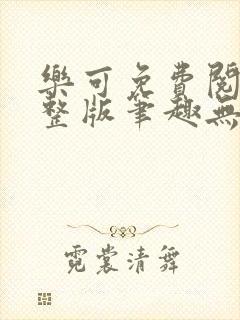 樂可免費閱
整版筆趣無
霓裳清舞